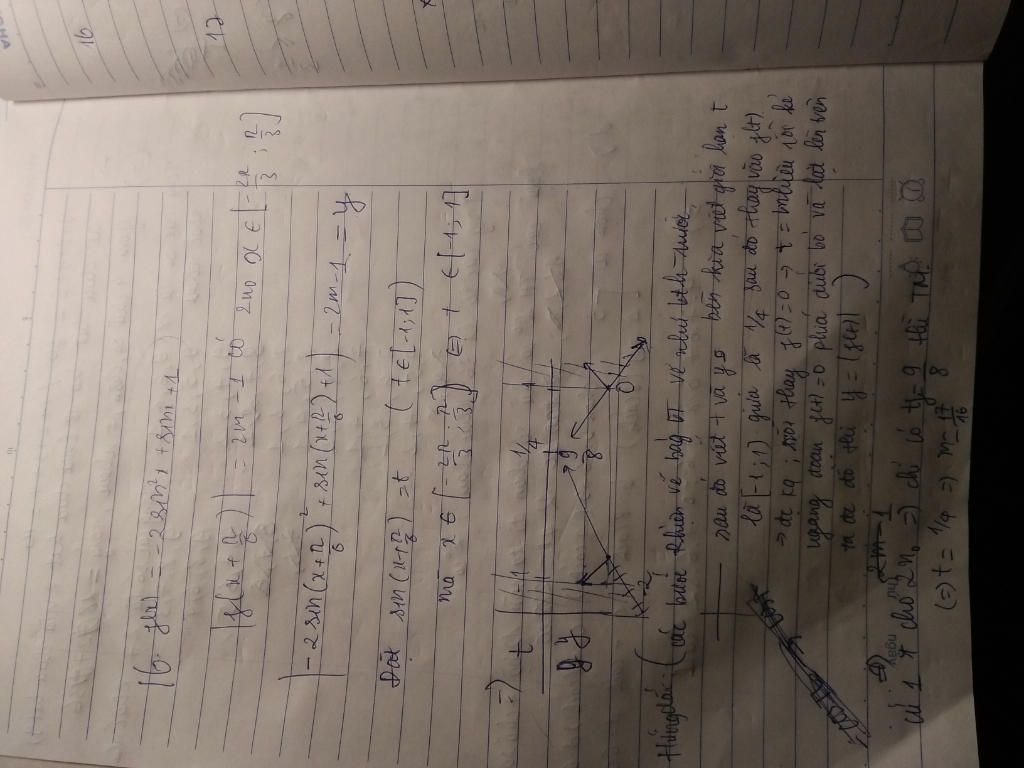 16
17
16. f(x) = -2 sin²x + sinx + 1
|f(x + π/6)| = 2m - 1 có 2no x ∈ [-2π/3 ; π/3]
|-2 sin(x + π/6)² + sin(x + π/6) + 1| = 2m - 1 = y
Đặt sin(x + π/6) = t (t ∈ [-1;1])
mà x ∈ [-2π/3 ; π/3] ⇔ t ∈ [-1;1]
⇒ t 1/4
y 9/8 0 -2
(các bước khiên vẽ bảng BT vẽ như bình thường
sau đó viết t và y rồi viết giới hạn t
là [-1;1] giữa là 1/4 sau đó thay vào f(t)
⇒ rồi thay f(t) = 0 → t = nghiệm rồi kẻ
ngang đoạn f(t) = 0 phía dưới bỏ và hất lên trên
ta đc đồ thị y = |f(t)|)
2m - 1
để 2no ⇒ chỉ có y = 9/8 thì TM
(⇒) t = 1/4 ⇒ m = 17/16